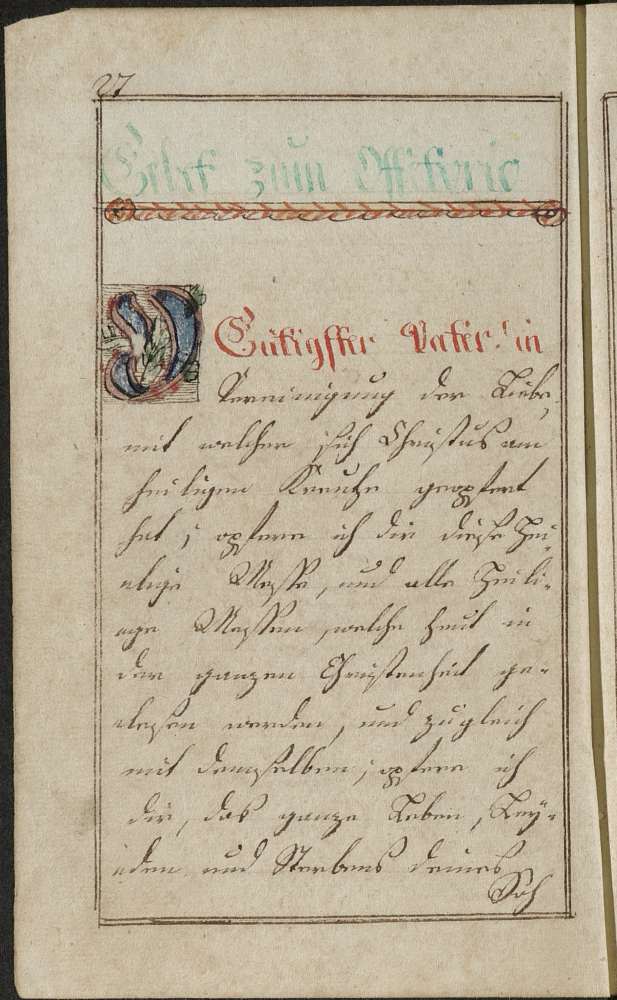 27
Gebet zum Offitorio
O
Gütigster Vater! in
Vereinigung der Liebe,
mit welcher sich Christus am
heiligen Kreutze geopfert
hat; opfere ich dir diese Hei-
lige Messe, und alle Heili-
ge Messen, welche heut in
der ganzen Christenheit ge-
lesen werden, und zugleich
mit demselben; opfere ich
dir, das ganze Leben, Ley-
den und Sterbens deines
Soh